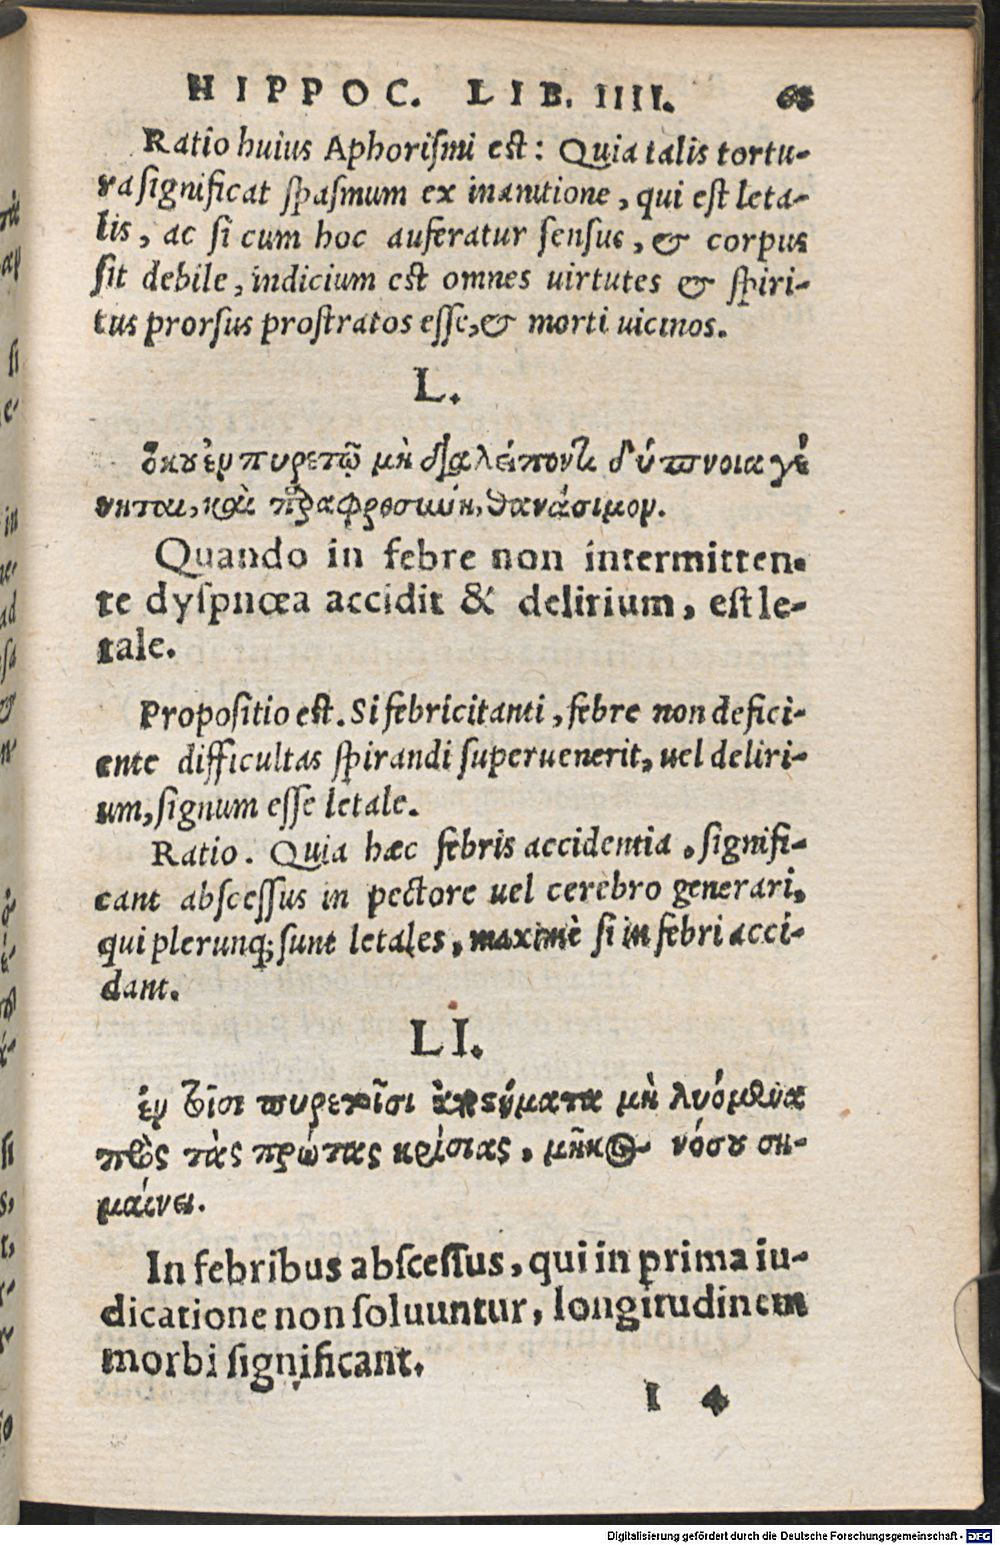 HIPPOC. LIB. IIII. 68
Ratio huius Aphoriſmi est: Quia talis tortu-
ra ſignificat ſpaſmum ex inanitione, qui est leta-
lis, ac ſi cum hoc auferatur ſenſus, & corpus
ſit debile, indicium est omnes uirtutes & ſpiri-
tus prorſus proſtratos eſſe, & morti uicinos.
L.
ὅκου ἐν πυρετῷ μὴ διαλείποντι δύσπνοια γέ
νηται, καὶ παραφροσύνη, θανάσιμον.
Quando in febre non intermitten-
te dyſpnœa accidit & delirium, eſt le-
tale.
Propoſitio est. Si febricitanti, febre non defici-
ente difficultas ſpirandi ſuperuenerit, uel deliri-
um, ſignum eſſe letale.
Ratio. Quia hæc febris accidentia, ſignifi-
cant abſceſſus in pectore uel cerebro generari,
qui plerunq; ſunt letales, maximè ſi in febri acci-
dant.
LI.
ἐν τοῖσι πυρετοῖσι ἀποστήματα μὴ λυόμενα
πρὸς τὰς πρώτας κρίσιας, μῆκος νόσου ση-
μαίνει.
In febribus abſceſſus, qui in prima iu-
dicatione non ſoluuntur, longitudinem
morbi ſignificant.
I 4
Digitalisierung gefördert durch die Deutsche Forschungsgemeinschaft - DFG